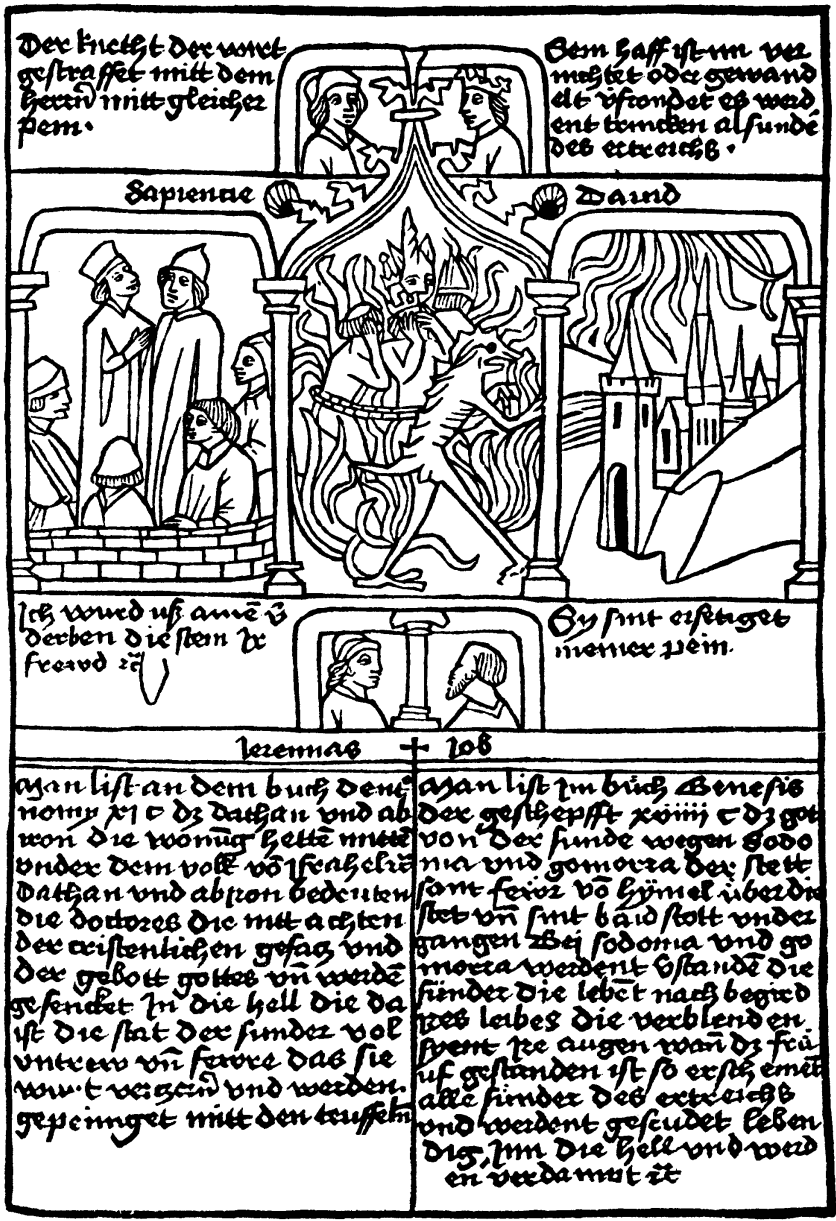 Der knecht der wirt
gestraffet mitt dem
herrn̄ mitt gleicher
pein.
Sein haff ist nu ver
nichtet oder gewand
elt v̈stondet es werd
ent trincken al sundē
des ertreichs.
Sapiencie
Dauid
Ich wurd uß amē v̄
derben die stem Ir
frewd ꝛč
Sy sint ersetiget
meiner pein.
Jeremias + Job
Man list an dem buch deut̄
nomy XI c dz dathan und ab
iron die wonūg hettē mittē
vnder dem volk vō israhel ꝛč
Dathan vnd abyron bedeuten
die doctores die nitt achten
der cristenlichen gesatz und
der gebott gottes vn̄ werdē
gesencket In die hell die da
ist die stat der sunder vol
vntrew vn̄ fewre das sie
wirt verzern̄ vnd werden
gepeiniget mitt den teuffeln
Man list Im bůch Genesis
der geschepfft xviiii c dz got
von der sunde wegen Sodo
ma vnd gomorra der stett
sant fewr vō hÿmel über die
stet vn̄ sint baid stott vnder
gangen Bei sodoma vnd go
morra werdent v̄standē die
sünder die lebēt nach begird
Ires leibes die verblenden
Ire augen wan̄ dz
uf gestanden ist so erschement
alle sünder des ertreichs
vnd werdent gescudet leben
dig Inn die hell vnd werd
en verdamnt ꝛč